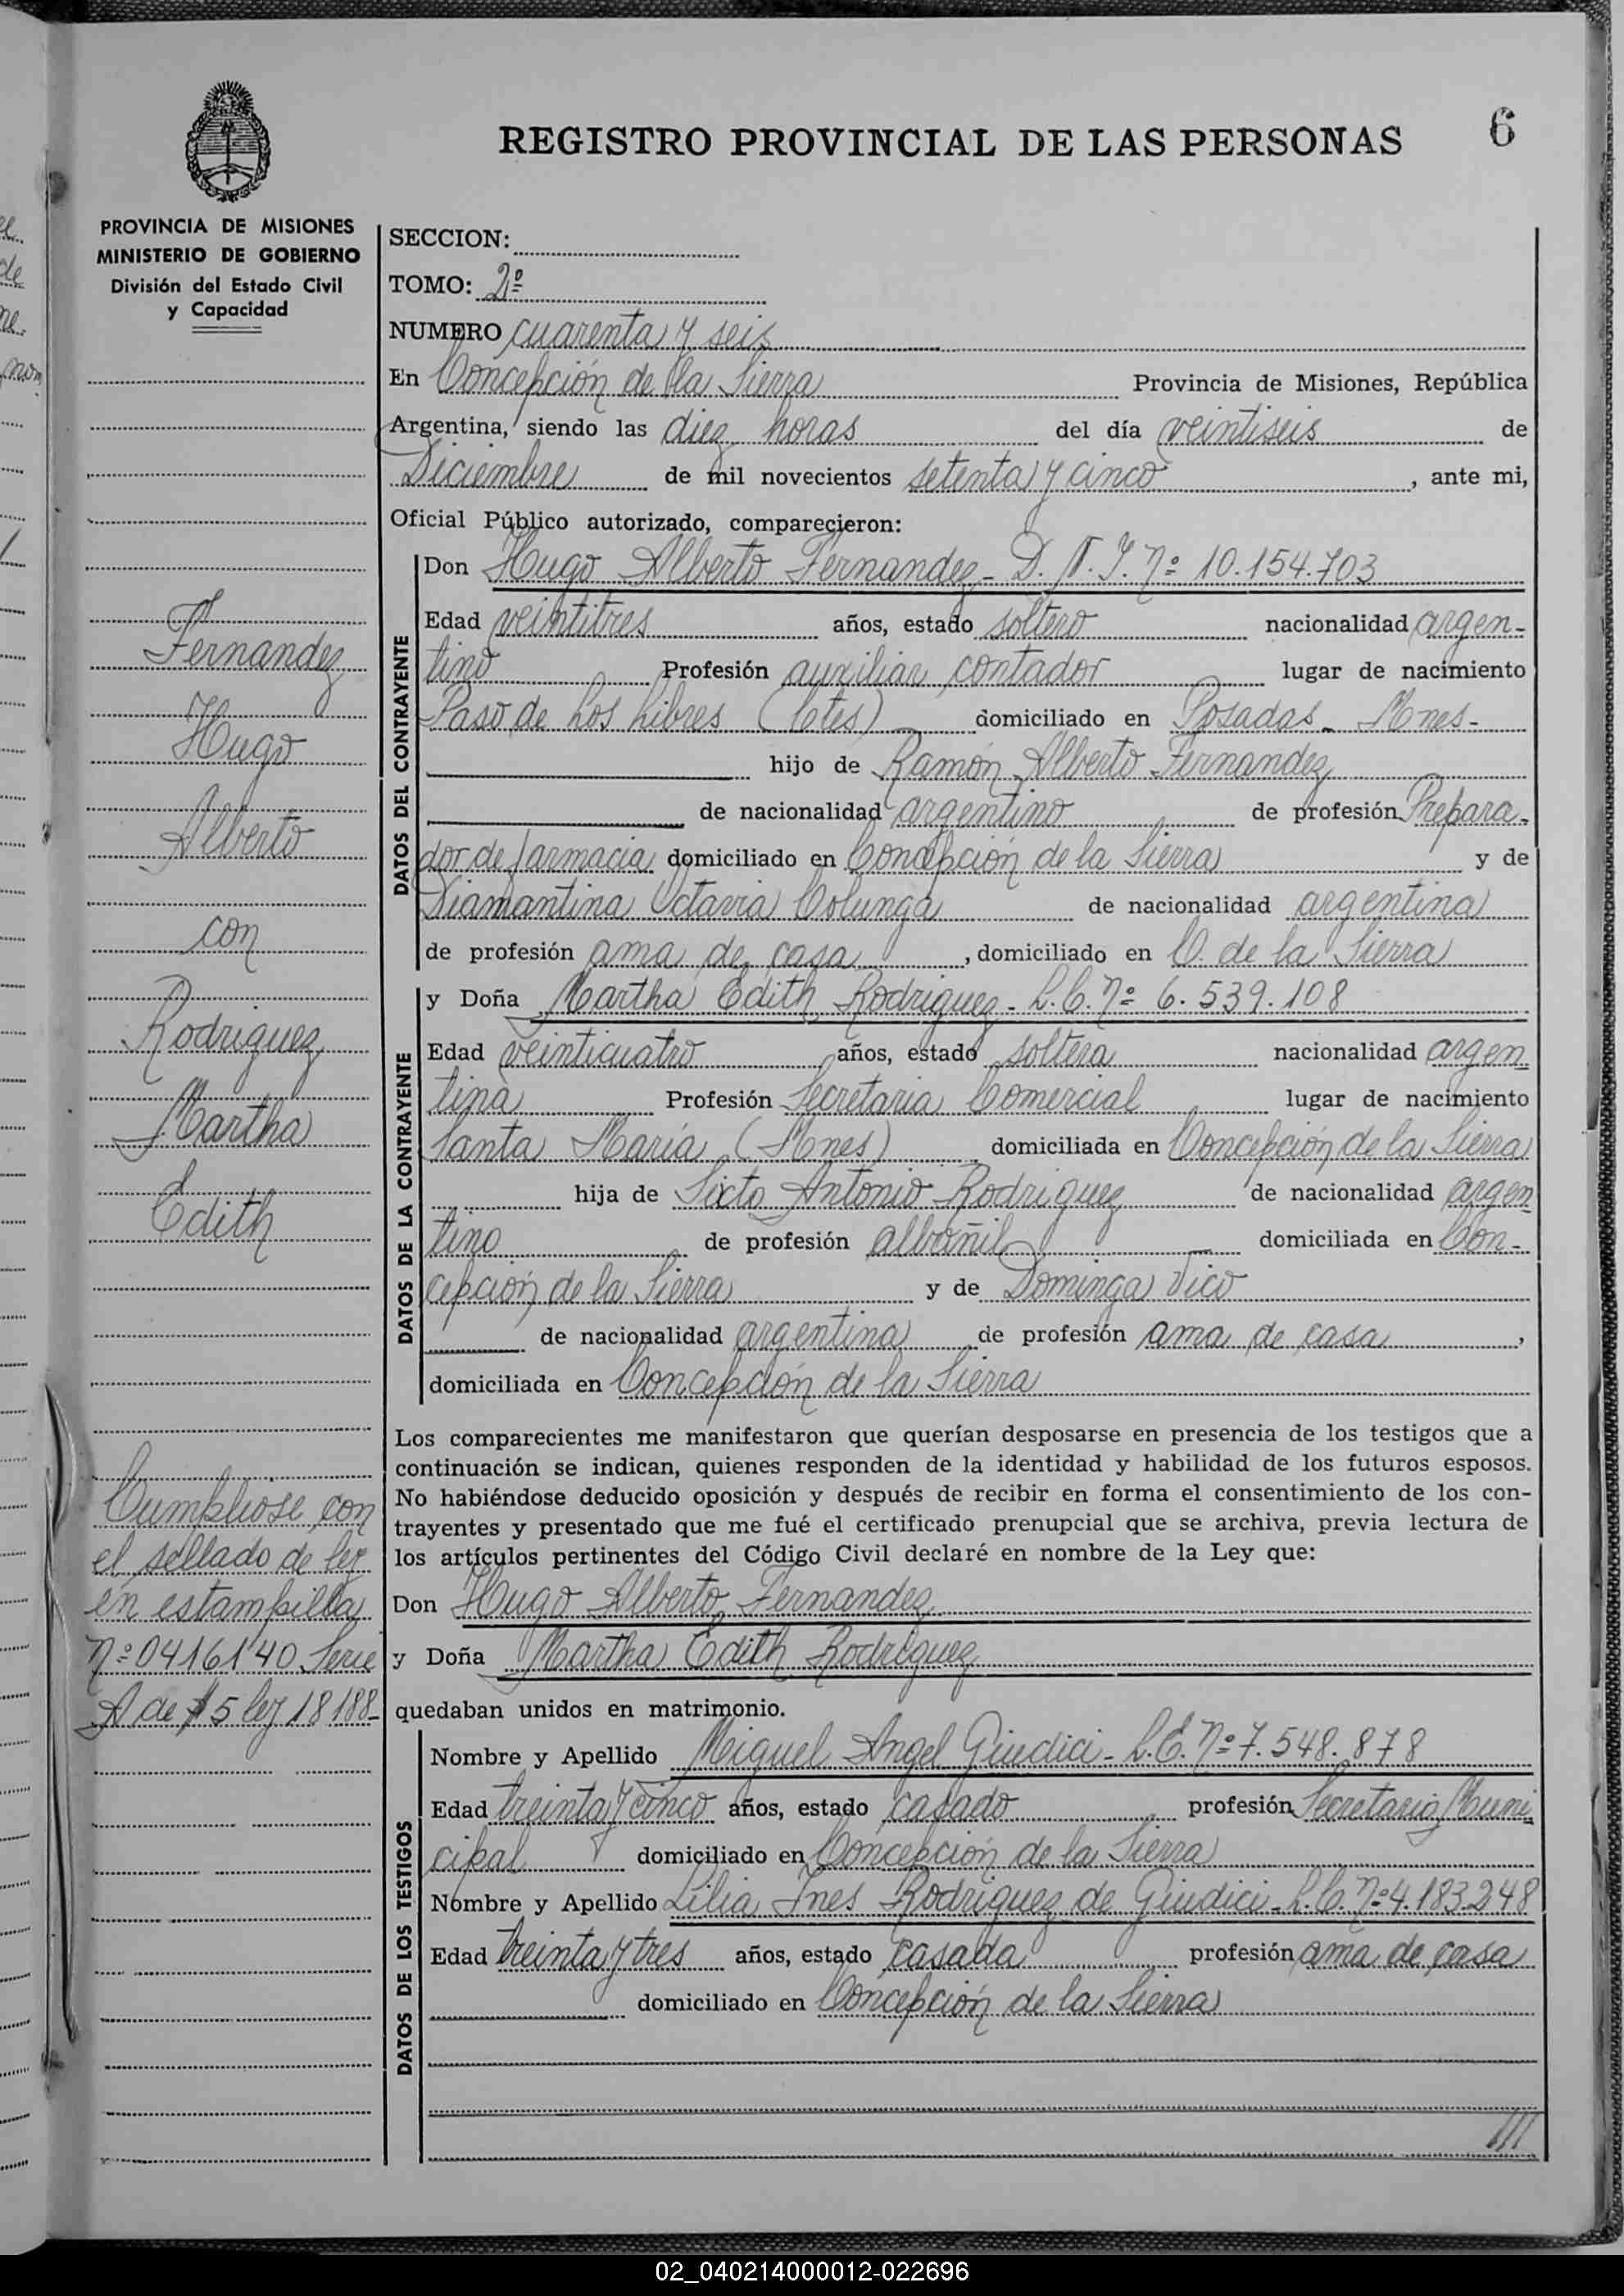 6
REGISTRO PROVINCIAL DE LAS PERSONAS
PROVINCIA DE MISIONES
MINISTERIO DE GOBIERNO
División del Estado Civil
y Capacidad
SECCION:
TOMO: 2º
NUMERO cuarenta y seis
En Concepción de la Sierra Provincia de Misiones, República
Argentina, siendo las diez horas del día veintiseis de
Diciembre de mil novecientos setenta y cinco, ante mi,
Oficial Público autorizado, comparecieron:
DATOS DEL CONTRAYENTE
Don Hugo Alberto Fernandez - D. N. I. Nº 10.154.703
Edad veintitres años, estado soltero nacionalidad argen-
tino Profesión auxiliar contador lugar de nacimiento
Paso de Los Libres (Ctes) domiciliado en Posadas - Mnes-
hijo de Ramón Alberto Fernandez
de nacionalidad argentino de profesión Prepara-
dor de farmacia domiciliado en Concepción de la Sierra y de
Diamantina Octavia Colunga de nacionalidad argentina
de profesión ama de casa, domiciliado en C. de la Sierra
DATOS DE LA CONTRAYENTE
y Doña Martha Edith Rodriguez - L. C. Nº 6.539.108
Edad veinticuatro años, estado soltera nacionalidad argen
tina Profesión Secretaria Comercial lugar de nacimiento
Santa María (Mnes) domiciliada en Concepción de la Sierra
hija de Sixto Antonio Rodriguez de nacionalidad argen
tino de profesión albañil domiciliada en Con-
cepción de la Sierra y de Dominga Vico
de nacionalidad argentina de profesión ama de casa,
domiciliada en Concepción de la Sierra
Los comparecientes me manifestaron que querían desposarse en presencia de los testigos que a
continuación se indican, quienes responden de la identidad y habilidad de los futuros esposos.
No habiéndose deducido oposición y después de recibir en forma el consentimiento de los con-
trayentes y presentado que me fué el certificado prenupcial que se archiva, previa lectura de
los artículos pertinentes del Código Civil declaré en nombre de la Ley que:
Don Hugo Alberto Fernandez
y Doña Martha Edith Rodriguez
quedaban unidos en matrimonio.
DATOS DE LOS TESTIGOS
Nombre y Apellido Miguel Angel Giudici - L. E. Nº 7.548.878
Edad treinta y cinco años, estado casado profesión Secretario Muni
cipal domiciliado en Concepción de la Sierra
Nombre y Apellido Lilia Ines Rodriguez de Giudici - L. C. Nº 4.183.248
Edad treinta y tres años, estado casada profesión ama de casa
domiciliado en Concepción de la Sierra
///
Fernandez
Hugo
Alberto
con
Rodriguez
Martha
Edith
Cumpliose con
el sellado de ley
en estampilla
Nº 0416140 Serie
A de $5 ley 18188-
02_040214000012-022696